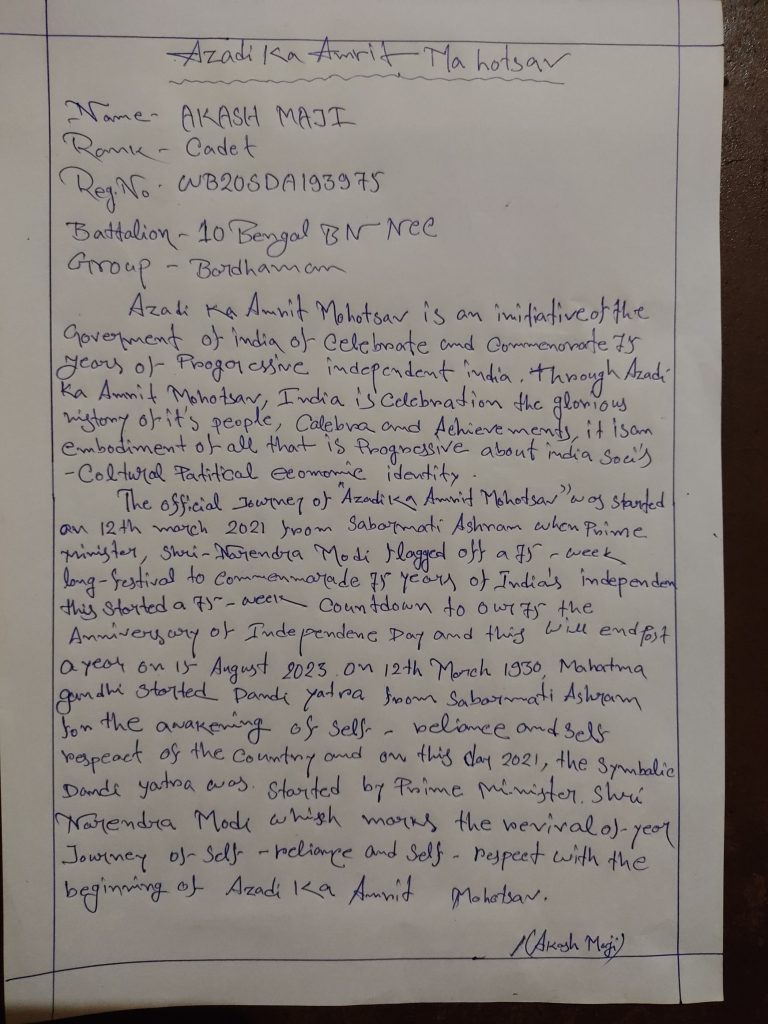 Azadi Ka Amrit Mahotsav
Name - AKASH MAJI
Rank - Cadet
Reg. No. WB20SDA193975
Battalion - 10 Bengal BN NCC
Group - Bardhaman
Azadi Ka Amrit Mohotsav is an initiative of the
Goverment of india of Celebrate and Commenorate 75
years of Progressive independent india. Through Azadi
Ka Amrit Mohotsav, India is Celebration the glorious
history of it's people, Calebra and Achievements, it is an
embodiment of all that is Progressive about india Soci's
- Coltural Patitical economic identity.
The official Journey of "Azadi Ka Amrit Mohotsav" was started
on 12th march 2021 from Sabarmati Ashram when Prime
Minister, Shri - Narendra Modi flagged off a 75 - week
long-festival to Commenmarade 75 years of India's independen
this started a 75 - week Countdown to our 75 the
Anniversary of Independene Day and this will end post
a year on 15 August 2023. on 12th March 1930, Mahatma
gandhi started Dandi yatra from Sabarmati Ashram
for the awakening of Self - reliance and self
respeact of the Country and on this day 2021, the symbalic
Dandi yatra was started by Prime Minister. Shri
Narendra Modi whish marks the revival of - year
Journey of self - reliance and self - respect with the
beginning of Azadi Ka Amrit Mohotsav.
(Akash Maji)